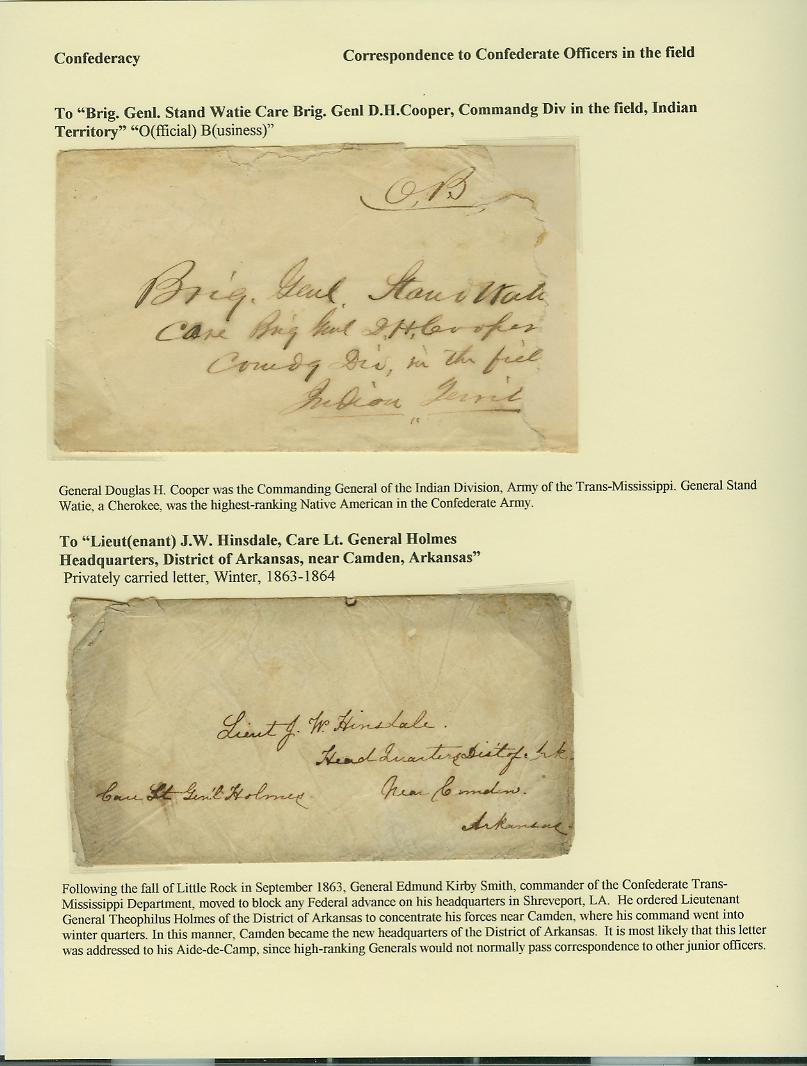 Confederacy
Correspondence to Confederate Officers in the field
To “Brig. Genl. Stand Watie Care Brig. Genl D.H.Cooper, Commandg Div in the field, Indian
Territory” “O(fficial) B(usiness)”
O,B
Brig. Genl. Stand Watie
Care Brig Genl D,H,Cooper
Comdg Div, in the fiel
Indian Territ
General Douglas H. Cooper was the Commanding General of the Indian Division, Army of the Trans-Mississippi. General Stand
Watie, a Cherokee, was the highest-ranking Native American in the Confederate Army.
To “Lieut(enant) J.W. Hinsdale, Care Lt. General Holmes
Headquarters, District of Arkansas, near Camden, Arkansas”
Privately carried letter, Winter, 1863-1864
Lieut J. W. Hinsdale.
Head Quarters Dist of. Ark.
Care Lt Gen'l Holmes
Near Camden.
Arkansas.
Following the fall of Little Rock in September 1863, General Edmund Kirby Smith, commander of the Confederate Trans-
Mississippi Department, moved to block any Federal advance on his headquarters in Shreveport, LA. He ordered Lieutenant
General Theophilus Holmes of the District of Arkansas to concentrate his forces near Camden, where his command went into
winter quarters. In this manner, Camden became the new headquarters of the District of Arkansas. It is most likely that this letter
was addressed to his Aide-de-Camp, since high-ranking Generals would not normally pass correspondence to other junior officers.